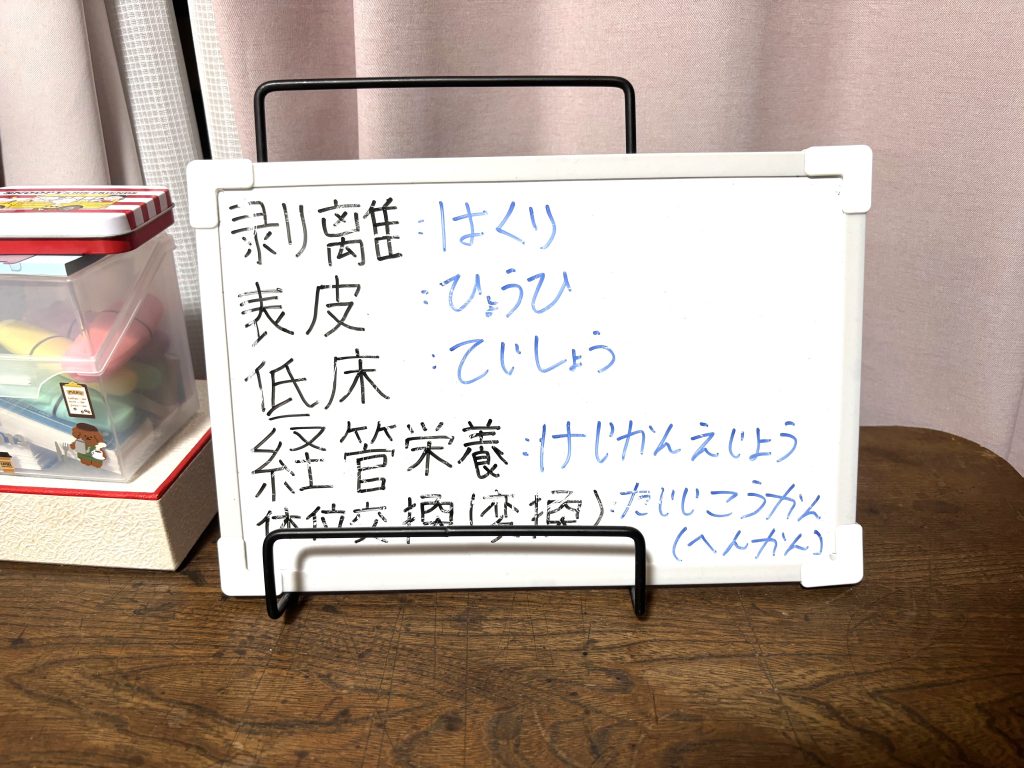 剥離:はくり
表皮:ひょうひ
低床:ていしょう
経管栄養:けいかんえいよう
体位交換(変換):たいいこうかん
(へんかん)